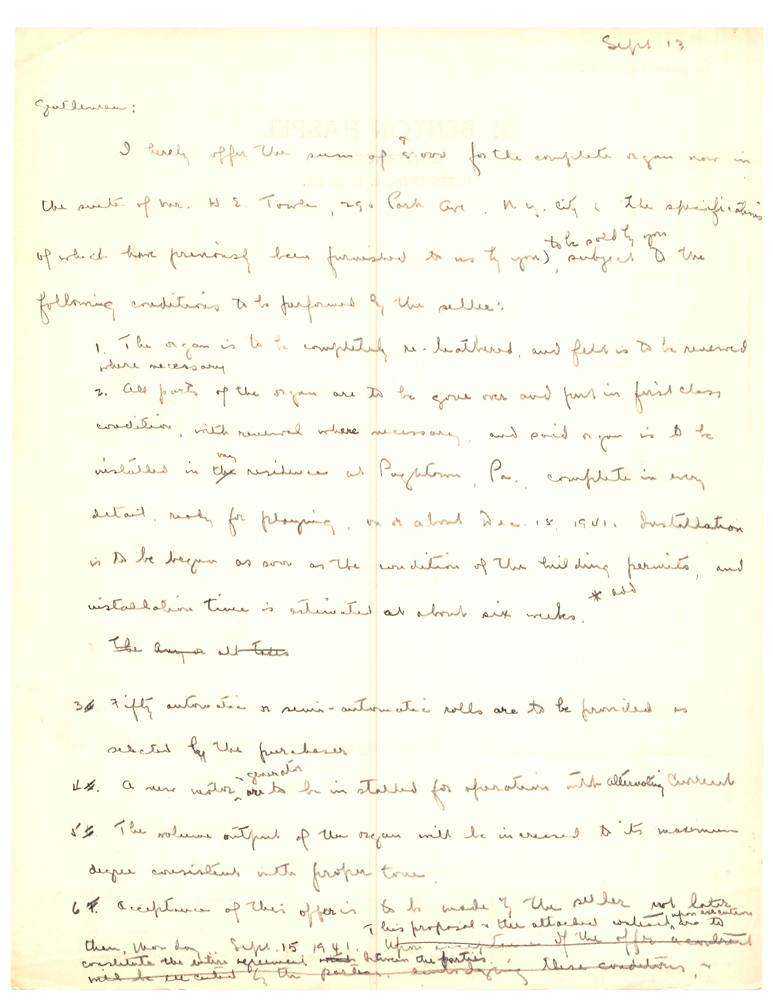 Sept 13
Gentlemen:
I hereby offer the sum of 000 for the complete organ now in
the suite of Mr. H E. Towle, 290 Park Ave. N.Y. City ( the specifications
of which have previously been furnished to us by you) to be sold by you, subject to the
following conditions to be performed by the seller:
1. The organ is to be completely re-leathered, and felt is to be renewed
where necessary
2. All parts of the organ are to be gone over and put in first class
condition, with renewal where necessary, and said organ is to be
installed in my residence at Pughtown, Pa., complete in every
detail, ready for playing, on or about Dec. 15, 1941. Installation
is to be begun as soon as the condition of the building permits, and
installation time is estimated at about six weeks. * add
The
3 Fifty automatic or semi-automatic rolls are to be provided as
selected by the purchaser
4. A new motor generator are to be installed for operation with alternating current
5 The volume output of the organ will be increased to its maximum
degree consistent with proper tone.
6. Acceptance of this offer is to be made by the seller not later
This proposal & the attached contract, upon execution are to
than, Monday Sept. 15 1941. Upon acceptance of the offer a contract
constitute the entire agreement between the parties.
will be executed by the parties embodying these conditions,